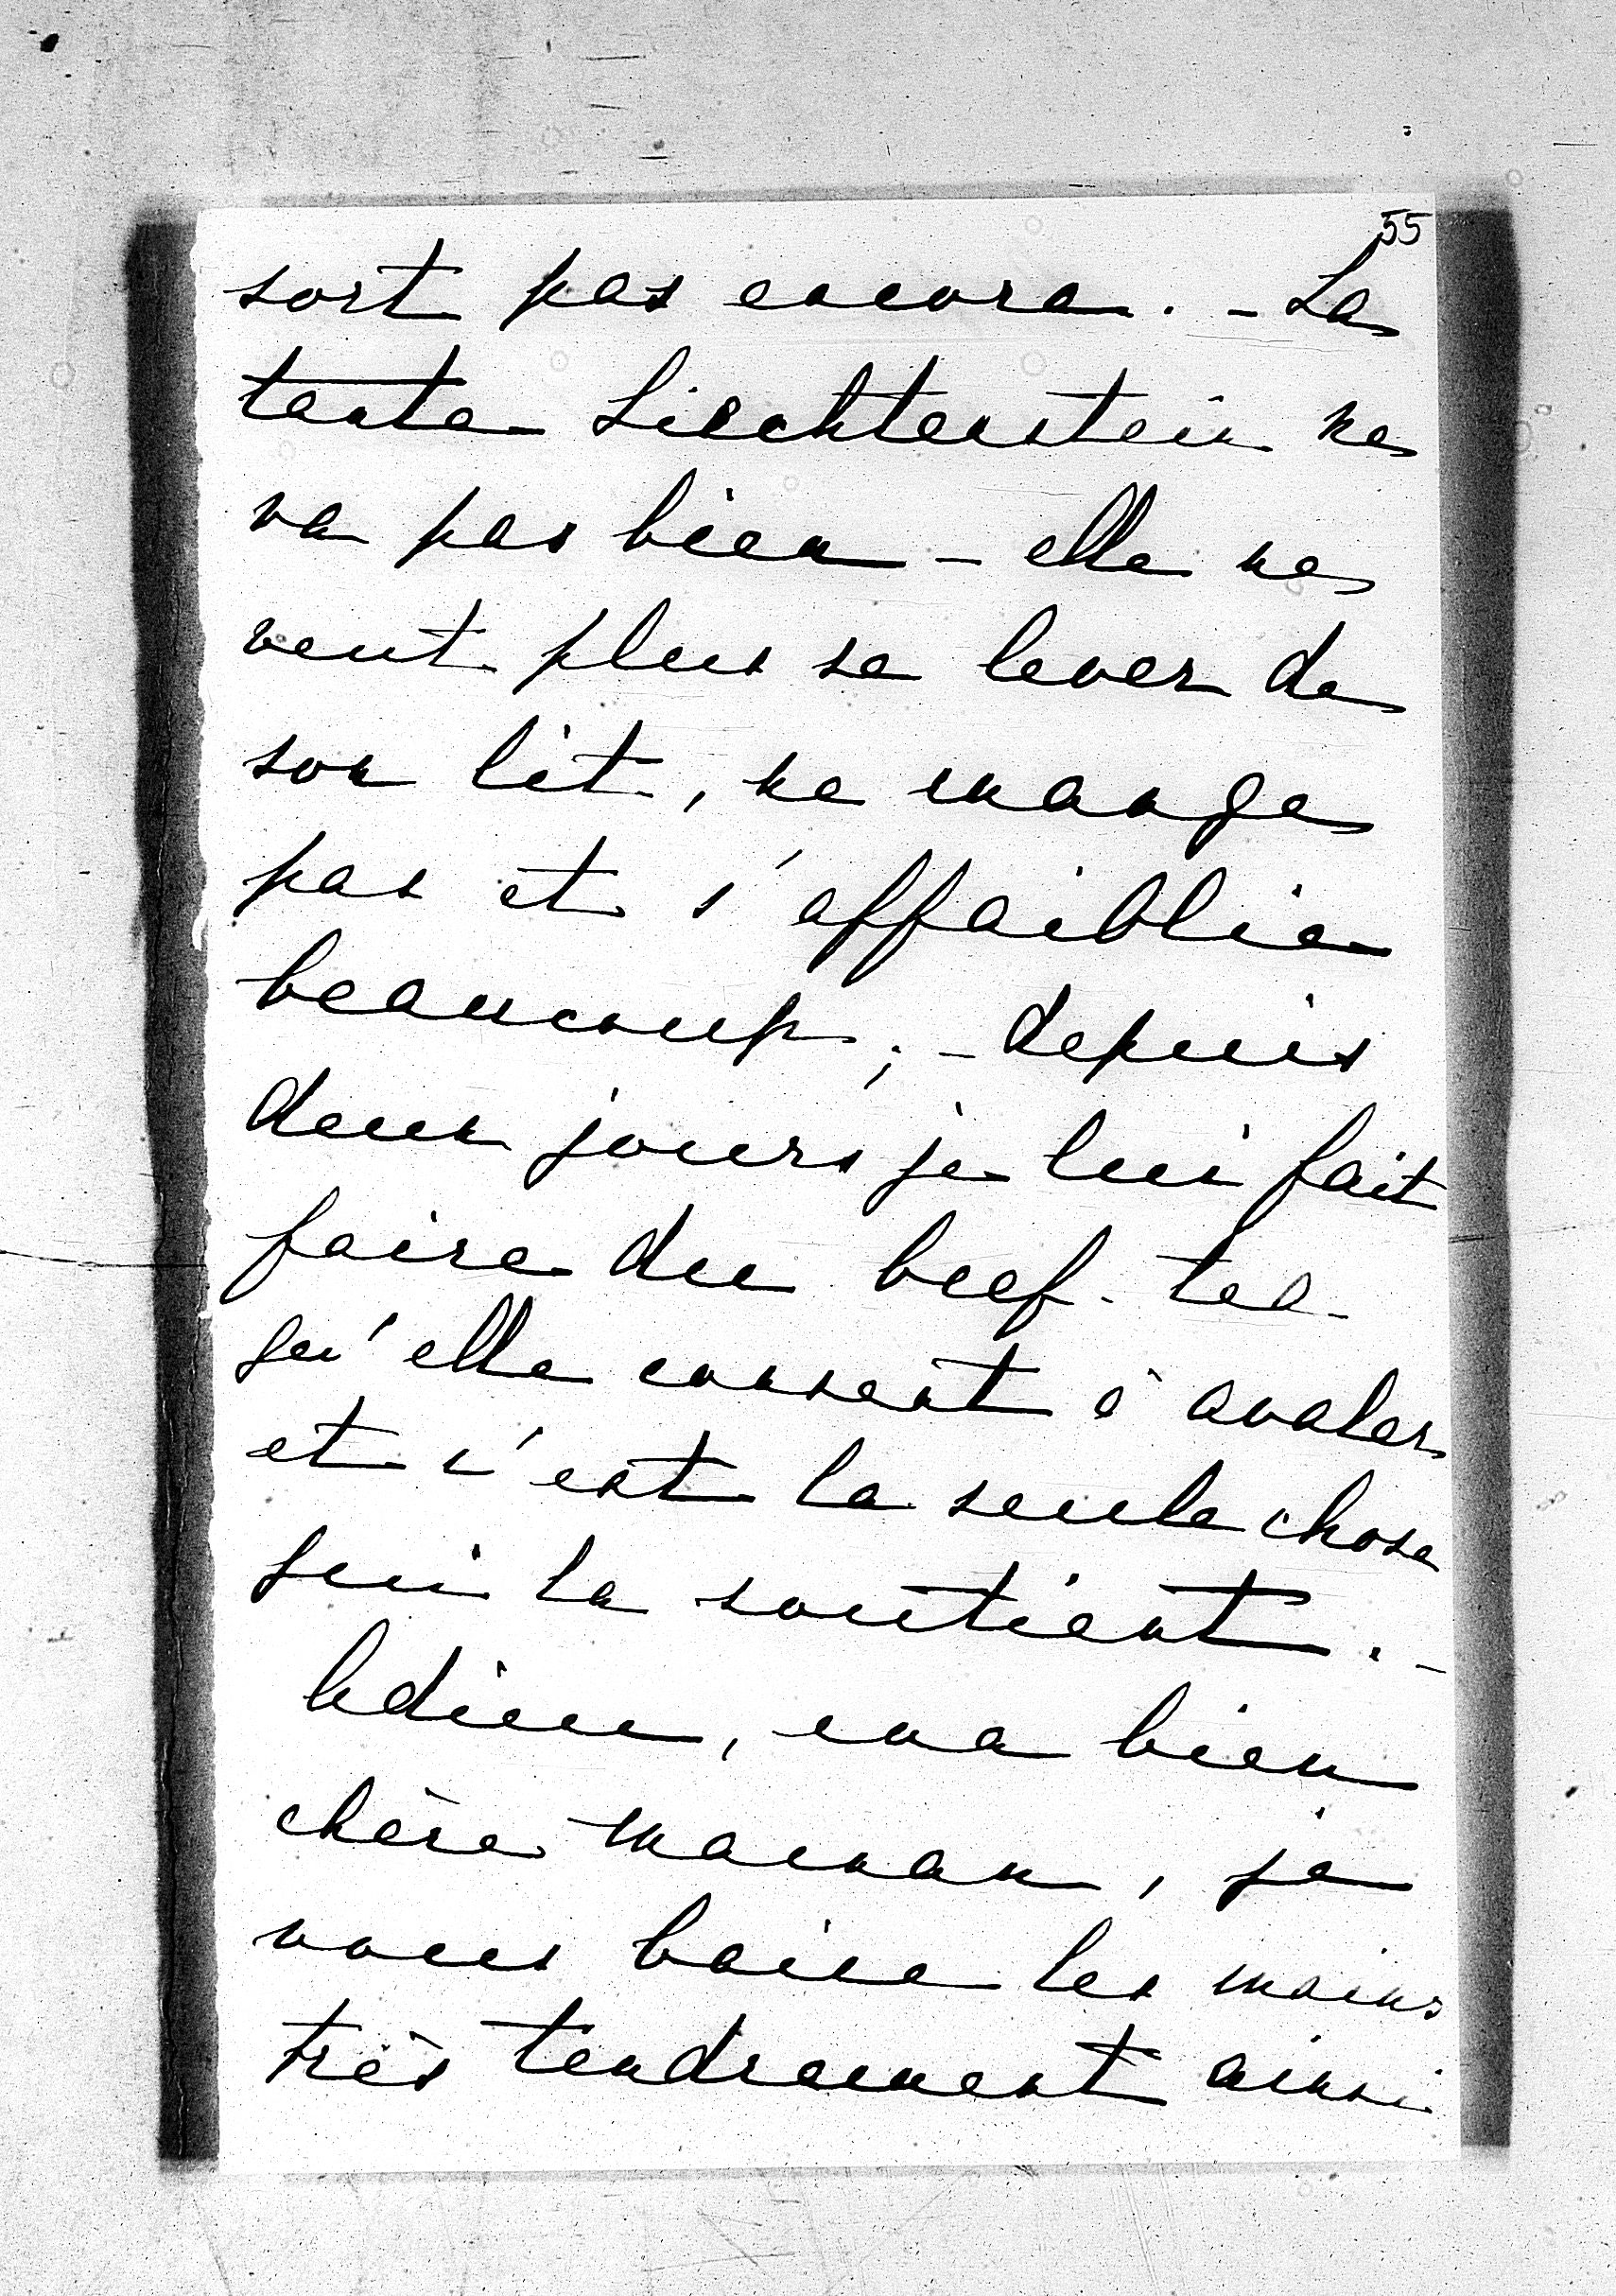 55
sort pas encore. - La
tante Liechtenstein ne
va pas bien - elle ne
veut plus se lever de
son lit, ne mange
pas et s'affaiblie
beaucoup; - depuis
deux jours je lui fait
faire du beef-tea
qu'elle consent à avaler
et c'est la seule chose
qui la soutient. -
Adieu, ma bien
chère maman, je
vous baise les mains
très tendrement ainsi